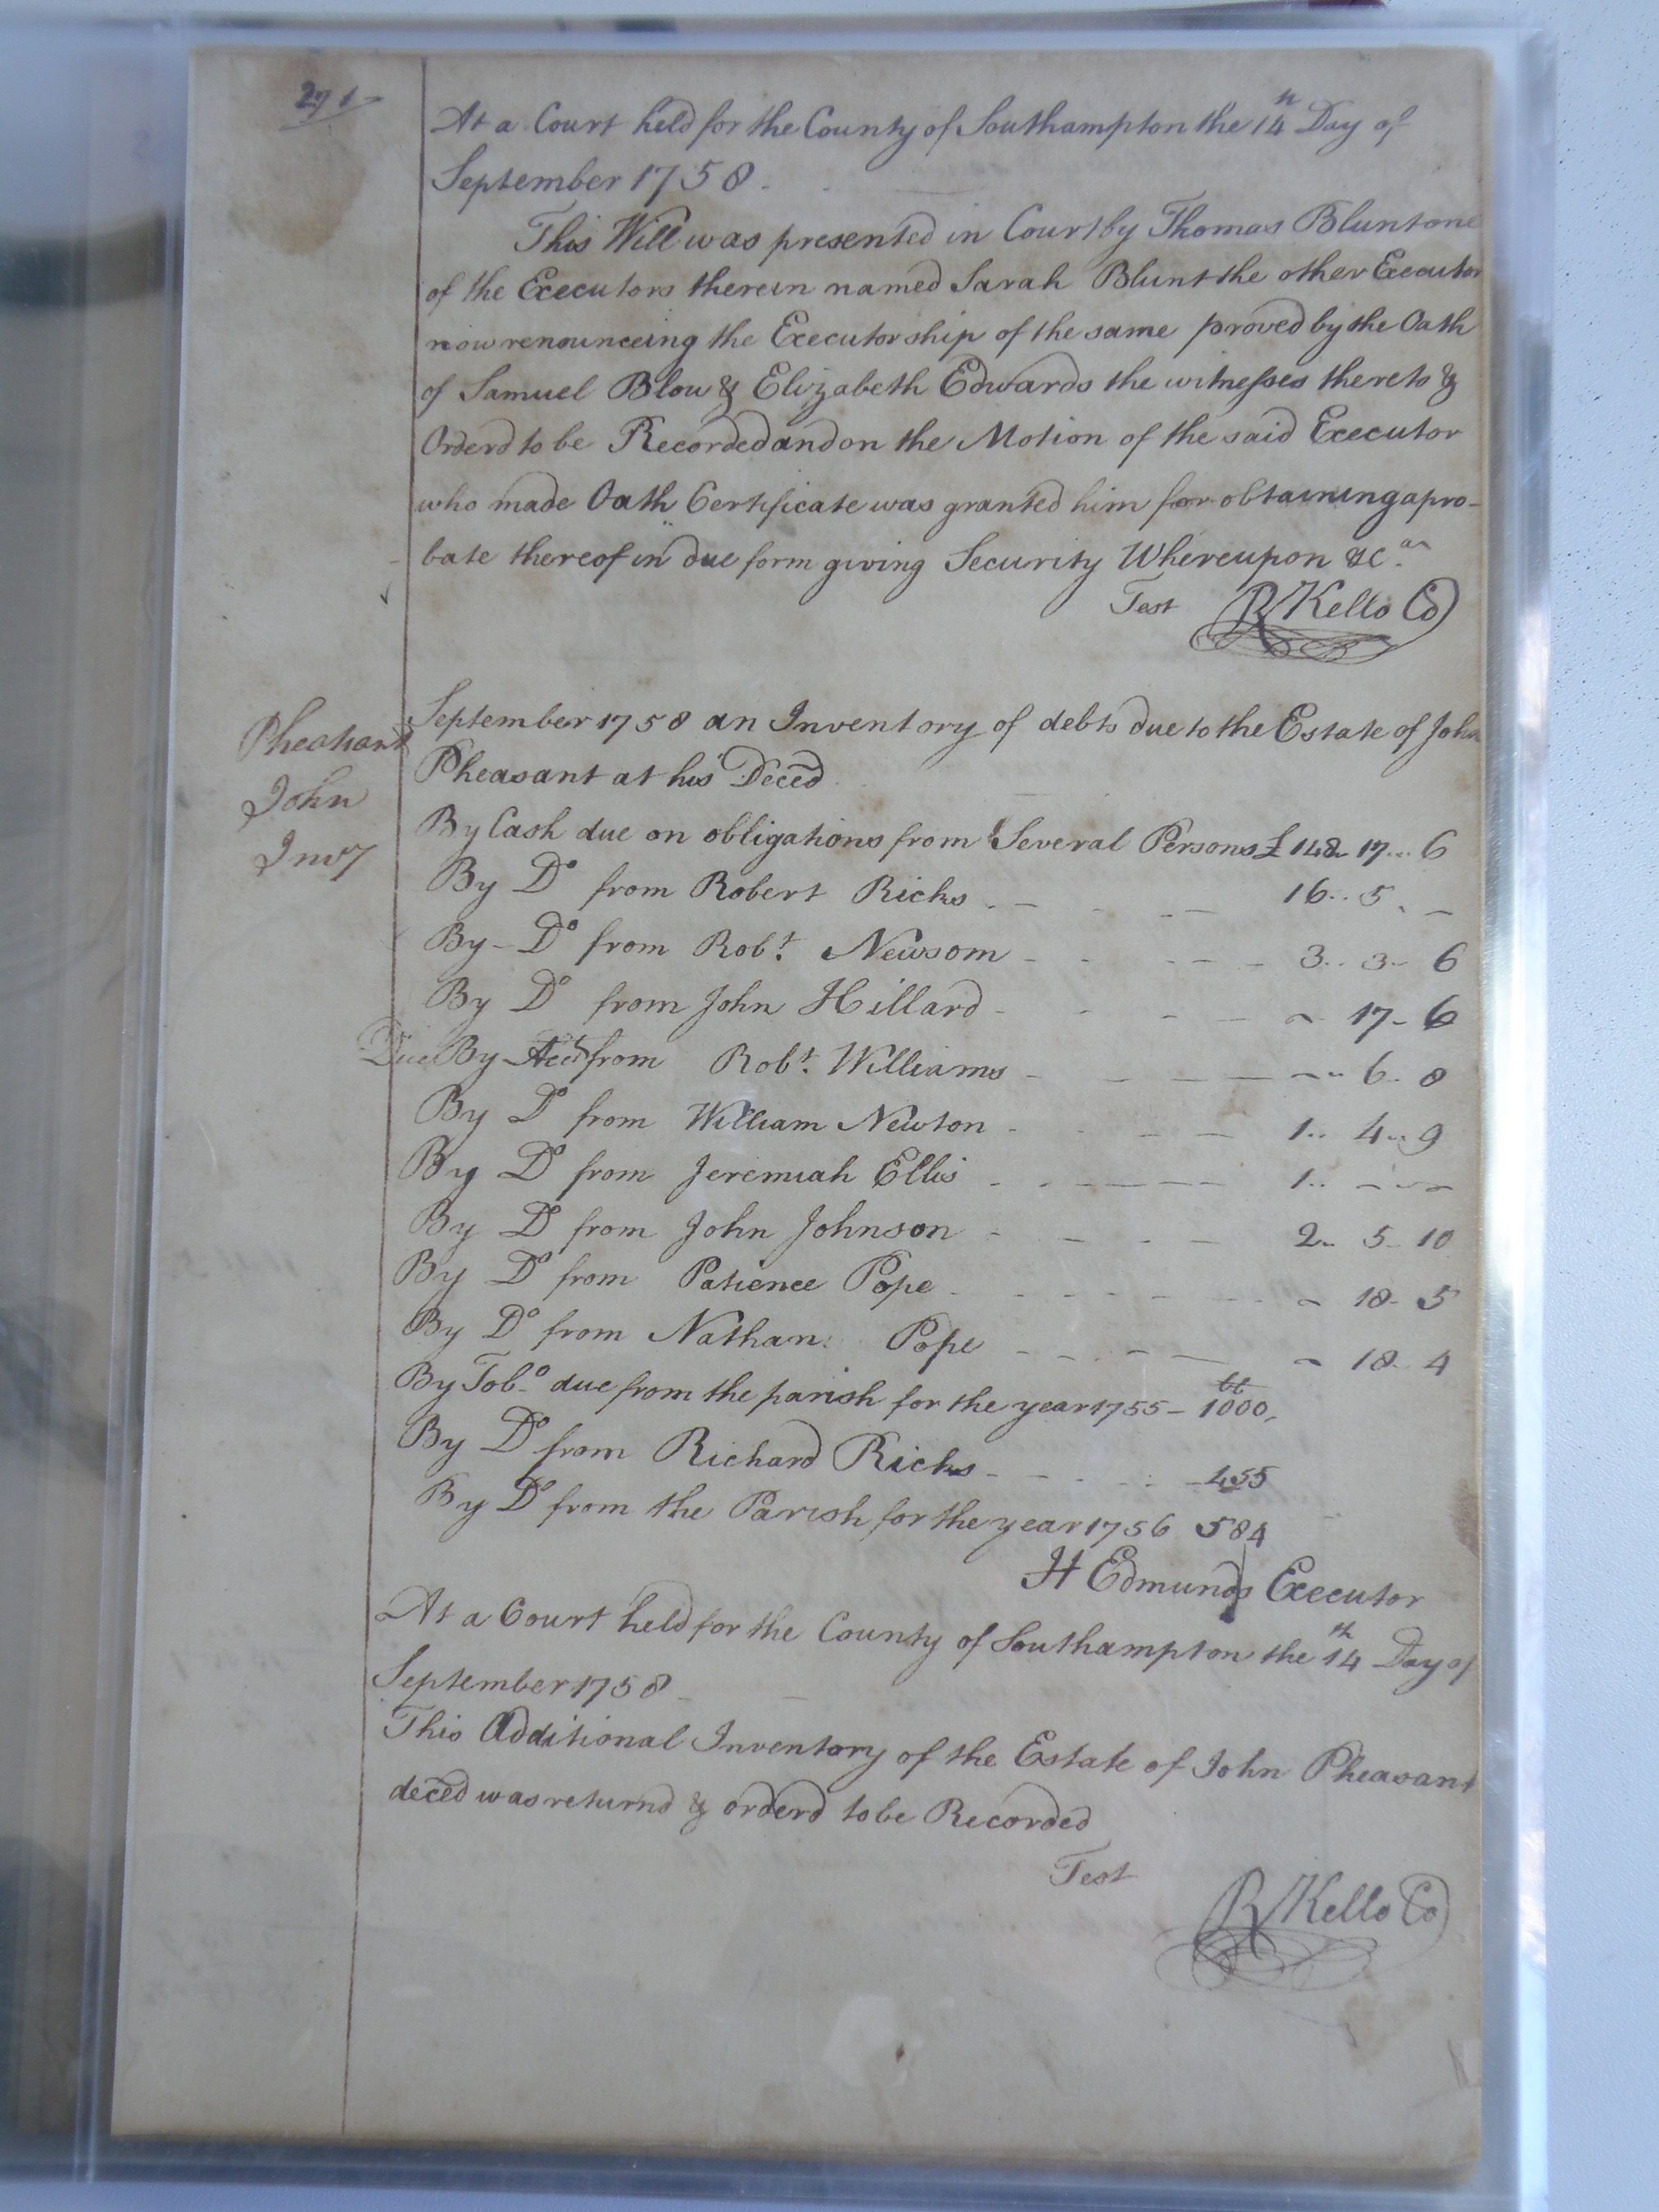 271
At a Court held for the County of Southampton the 14th Day of
September 1758.
This Will was presented in Court by Thomas Blunt one
of the Executors therein named Sarah Blunt the other Executor
now renounceing the Executorship of the same proved by the Oath
of Samuel Blow & Elizabeth Edwards the witnesses thereto &
Orderd to be Recorded and on the Motion of the said Executor
who made Oath Certificate was granted him for obtaining a pro-
bate thereof in due form giving Security Whereupon &c.
Test R Kello Co
Pheasant
John
Invy
September 1758 an Inventory of debts due to the Estate of John
Pheasant at his Deced
By Cash due on obligations from Several Persons £ 148 17 .. 6
By Do from Robert Ricks - - - 16 .. 5 . -
By - Do from Robt. Newsom - - - 3 .. 3 - 6
By Do from John Hillard - - - - 17 - 6
Due By Acct from Robt. Williams - - - - 6 - 8
By Do from William Newton - - - 1 .. 4 .. 9
By Do from Jeremiah Ellis - - - 1 .. - - -
By Do from John Johnson - - - 2 .. 5 - 10
By Do from Patience Pope - - - - 18 - 5
By Do from Nathan Pope - - - - 18 - 4
By Tobo due from the parish for the year 1755 - 1000 lb
By Do from Richard Ricks - - - 455
By Do from the Parish for the year 1756 584
H Edmunds Executor
At a Court held for the County of Southampton the 14th Day of
September 1758
This Additional Inventory of the Estate of John Pheasant
deced was returnd & orderd to be Recorded
Test
R Kello Co